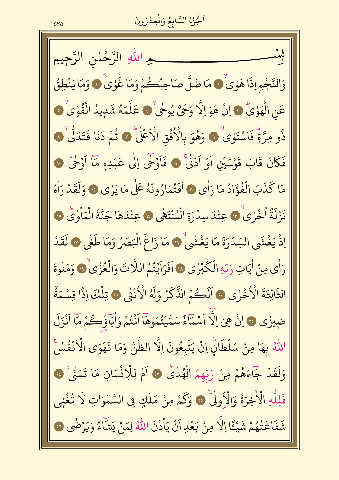 اَلْجُزْءُ السَّابِعُ وَالْعِشْرُونَ
٥٢٥
بِسْمِ اللّٰهِ الرَّحْمٰنِ الرَّحِيمِ
وَالنَّجْمِ اِذَا هَوٰىۙ ۝ مَا ضَلَّ صَاحِبُكُمْ وَمَا غَوٰىۚ ۝ وَمَا يَنْطِقُ
عَنِ الْهَوٰىۜ ۝ اِنْ هُوَ اِلَّا وَحْيٌ يُوحٰىۙ ۝ عَلَّمَهُ شَدِيدُ الْقُوٰىۙ ۝
ذُو مِرَّةٍۜ فَاسْتَوٰىۙ ۝ وَهُوَ بِالْاُفُقِ الْاَعْلٰىۜ ۝ ثُمَّ دَنَا فَتَدَلّٰىۙ ۝
فَكَانَ قَابَ قَوْسَيْنِ اَوْ اَدْنٰىۚ ۝ فَاَوْحٰٓى اِلٰى عَبْدِهٖ مَٓا اَوْحٰىۜ ۝
مَا كَذَبَ الْفُؤٰادُ مَا رَاٰى ۝ اَفَتُمَارُونَهُ عَلٰى مَا يَرٰى ۝ وَلَقَدْ رَاٰهُ
نَزْلَةً اُخْرٰىۙ ۝ عِنْدَ سِدْرَةِ الْمُنْتَهٰى ۝ عِنْدَهَا جَنَّةُ الْمَأْوٰىۜ ۝
اِذْ يَغْشَى السِّدْرَةَ مَا يَغْشٰىۙ ۝ مَا زَاغَ الْبَصَرُ وَمَا طَغٰى ۝ لَقَدْ
رَاٰى مِنْ اٰيَاتِ رَبِّهِ الْكُبْرٰى ۝ اَفَرَاَيْتُمُ اللَّاتَ وَالْعُزّٰىۙ ۝ وَمَنٰوةَ
الثَّالِثَةَ الْاُخْرٰى ۝ اَلَكُمُ الذَّكَرُ وَلَهُ الْاُنْثٰى ۝ تِلْكَ اِذًا قِسْمَةٌ
ضِيزٰى ۝ اِنْ هِيَ اِلَّٓا اَسْمَٓاءٌ سَمَّيْتُمُوهَٓا اَنْتُمْ وَاٰبَٓاؤُ۬كُمْ مَٓا اَنْزَلَ
اللّٰهُ بِهَا مِنْ سُلْطَانٍۜ اِنْ يَتَّبِعُونَ اِلَّا الظَّنَّ وَمَا تَهْوَى الْاَنْفُسُۚ
وَلَقَدْ جَٓاءَهُمْ مِنْ رَبِّهِمُ الْهُدٰىۜ ۝ اَمْ لِلْاِنْسَانِ مَا تَمَنّٰىۘ ۝
فَلِلّٰهِ الْاٰخِرَةُ وَالْاُو۫لٰى۟ ۝ وَكَمْ مِنْ مَلَكٍ فِي السَّمٰوَاتِ لَا تُغْنِي
شَفَاعَتُهُمْ شَيْـًٔا اِلَّا مِنْ بَعْدِ اَنْ يَأْذَنَ اللّٰهُ لِمَنْ يَشَٓاءُ وَيَرْضٰى ۝